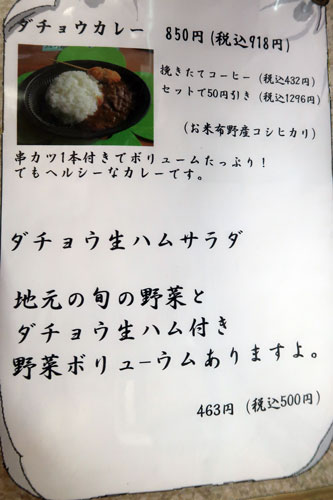 ダチョウカレー 850円(税込918円)
挽きたてコーヒー (税込432円)
セットで50円引き (税込1296円)
(お米布野産コシヒカリ)
串カツ1本付きでボリュームたっぷり!
でもヘルシーなカレーです。
ダチョウ生ハムサラダ
地元の旬の野菜と
ダチョウ生ハム付き
野菜ボリューウムありますよ。
463円 (税込500円)